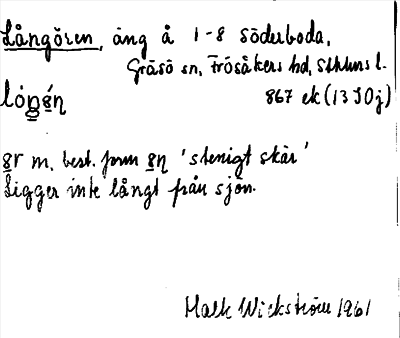 Långören, äng å 1-8 Söderboda,
Gräsö sn, Frösåkers hd, Sthlms l.
867 ek (13 I 0 j)
m, best. form 'stenigt skär'
Ligger inte långt från sjön.
Malk Wickström 1961